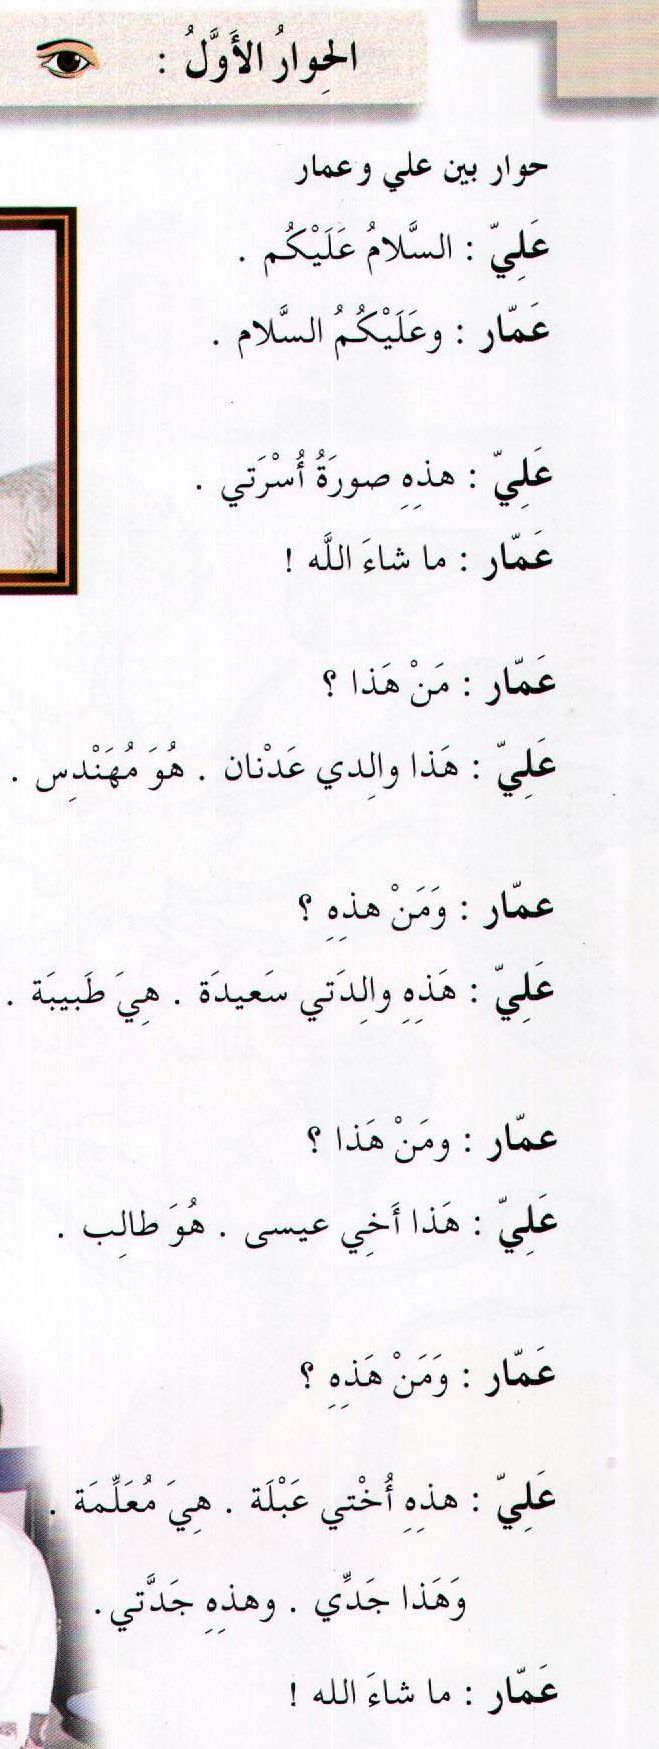 الحِوارُ الأَوَّلُ :
حوار بين علي وعمار
عَلِيّ : السَّلامُ عَلَيْكُم .
عَمّار : وعَلَيْكُمُ السَّلام .
عَلِيّ : هذِهِ صورَةُ أُسْرَتي .
عَمّار : ما شاءَ اللَّه !
عَمّار : مَنْ هَذا ؟
عَلِيّ : هَذا والِدي عَدْنان . هُوَ مُهَنْدِس .
عمّار : وَمَنْ هذِهِ ؟
عَلِيّ : هَذِهِ والِدَتي سَعيدَة . هِيَ طَبيبَة .
عمّار : ومَنْ هَذا ؟
عَلِيّ : هَذا أَخِي عيسى . هُوَ طالِب .
عَمّار : وَمَنْ هَذِهِ ؟
عَلِيّ : هذِهِ أُخْتي عَبْلَة . هِيَ مُعَلِّمَة .
وَهَذا جَدِّي . وهذِهِ جَدَّتي .
عَمّار : ما شاءَ الله !